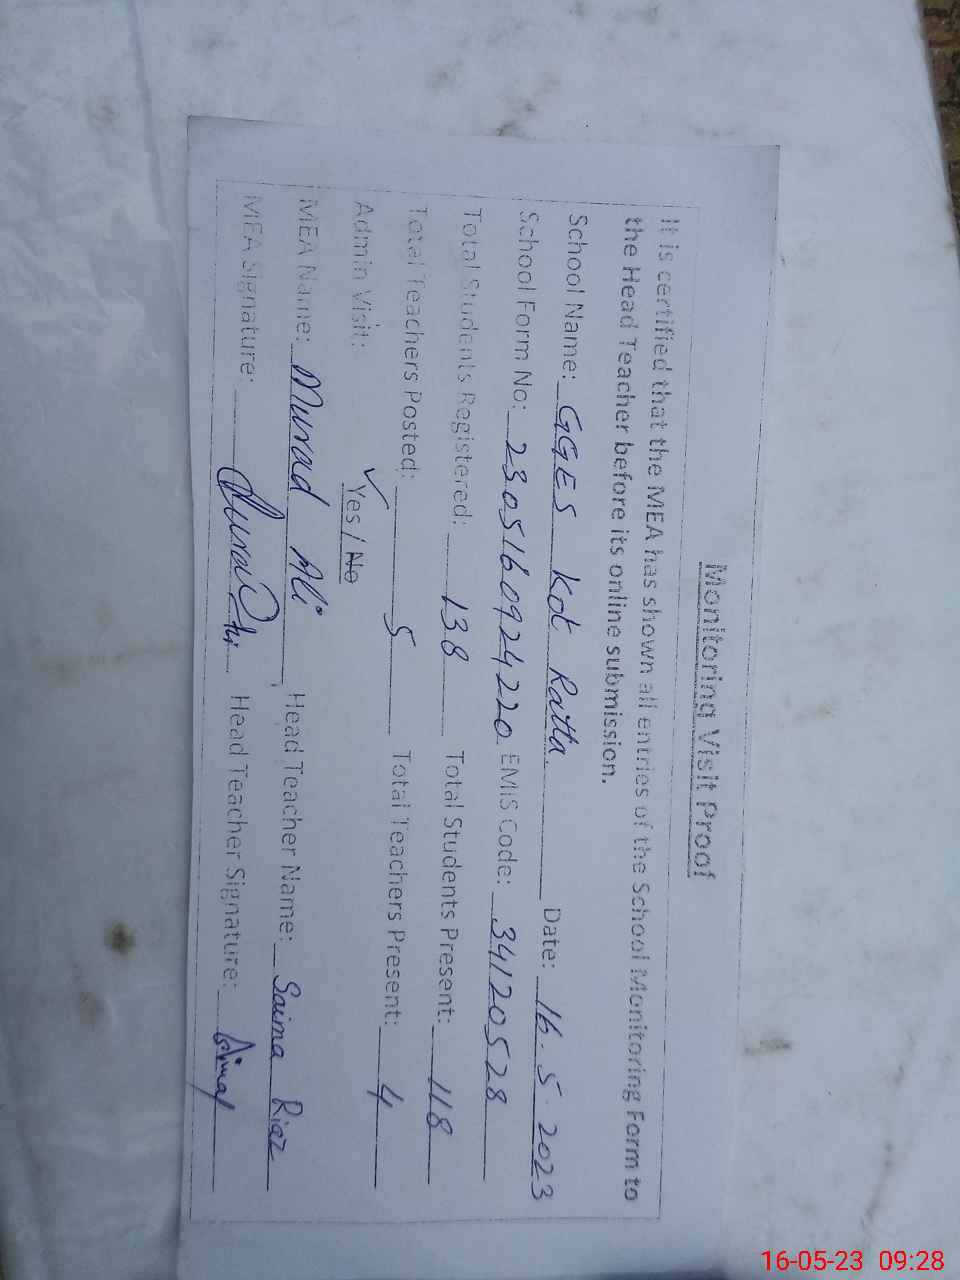 Monitoring Visit Proof
It is certified that the MEA has shown all entries of the School Monitoring Form to
the Head Teacher before its online submission.
School Name: GGES Kot Ratta Date: 16.5.2023
School Form No: 2305160924220 EMIS Code: 34120528
Total Students Registered: 138 Total Students Present: 118
Total Teachers Posted: 5 Total Teachers Present: 4
Admin Visit: ✓ Yes / No
MEA Name: Murad Ali, Head Teacher Name: Saima Riaz
MEA Signature: Head Teacher Signature:
16-05-23 09:28